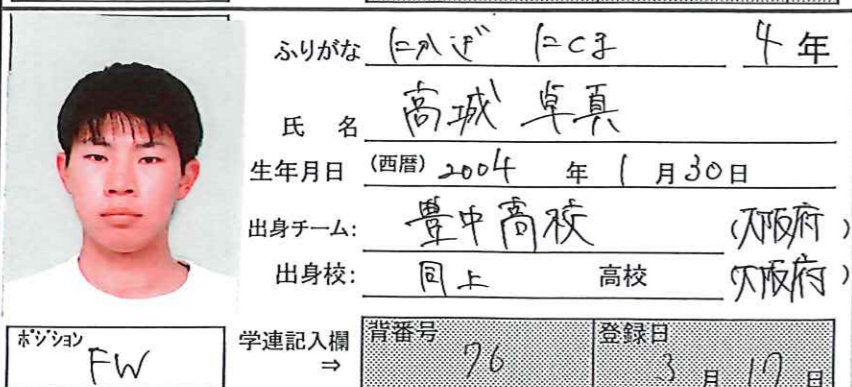 ふりがな たかぎ たくま 4年
氏 名 高城 卓真
生年月日 (西暦) 2004 年 1 月 30 日
出身チーム: 豊中高校 (大阪府)
出身校: 同上 高校 (大阪府)
ポジション FW
学連記入欄 ⇒
背番号 76
登録日 3 月 17 日